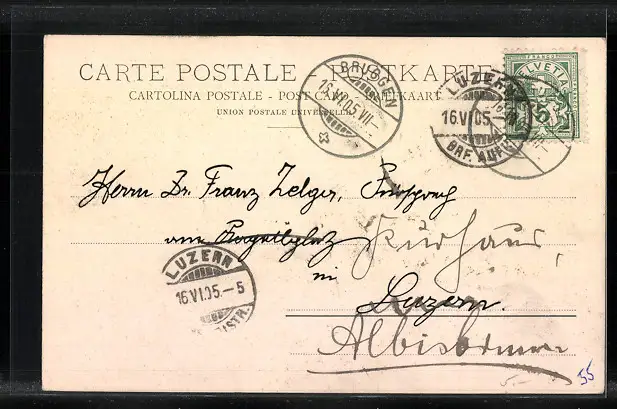 CARTE POSTALE - POSTKARTE
CARTOLINA POSTALE - POST CARD - BRIEFKAART
UNION POSTALE UNIVERSELLE
BRUGGEN
16.VI.05.VII-
LUZERN
16.VI.05-
BRF. AUFG.
FRANCO
HELVETIA
5
Herrn Dr. Franz Zelger, Fürsprech
Kurhaus
in
Luzern.
Albisbrunn
LUZERN
16.VI.05.-5
DISTR.
55